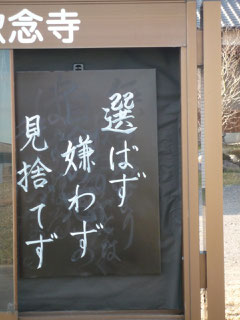 念寺
選ばず
嫌わず
見捨てず